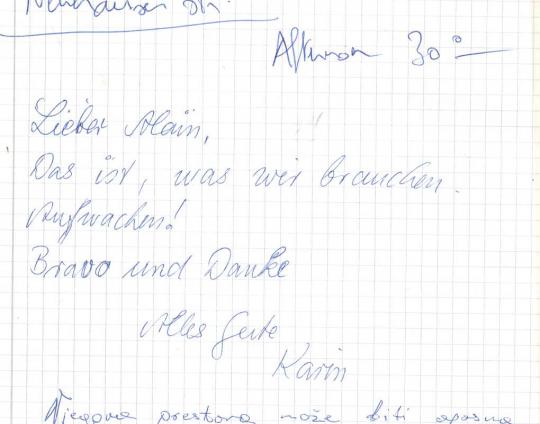 Afternoon 30°
Lieber Alain,
Das ist, was wir brauchen.
Aufwachen!
Bravo und Danke
Alles Gute
Karin
Njegova može biti opasna